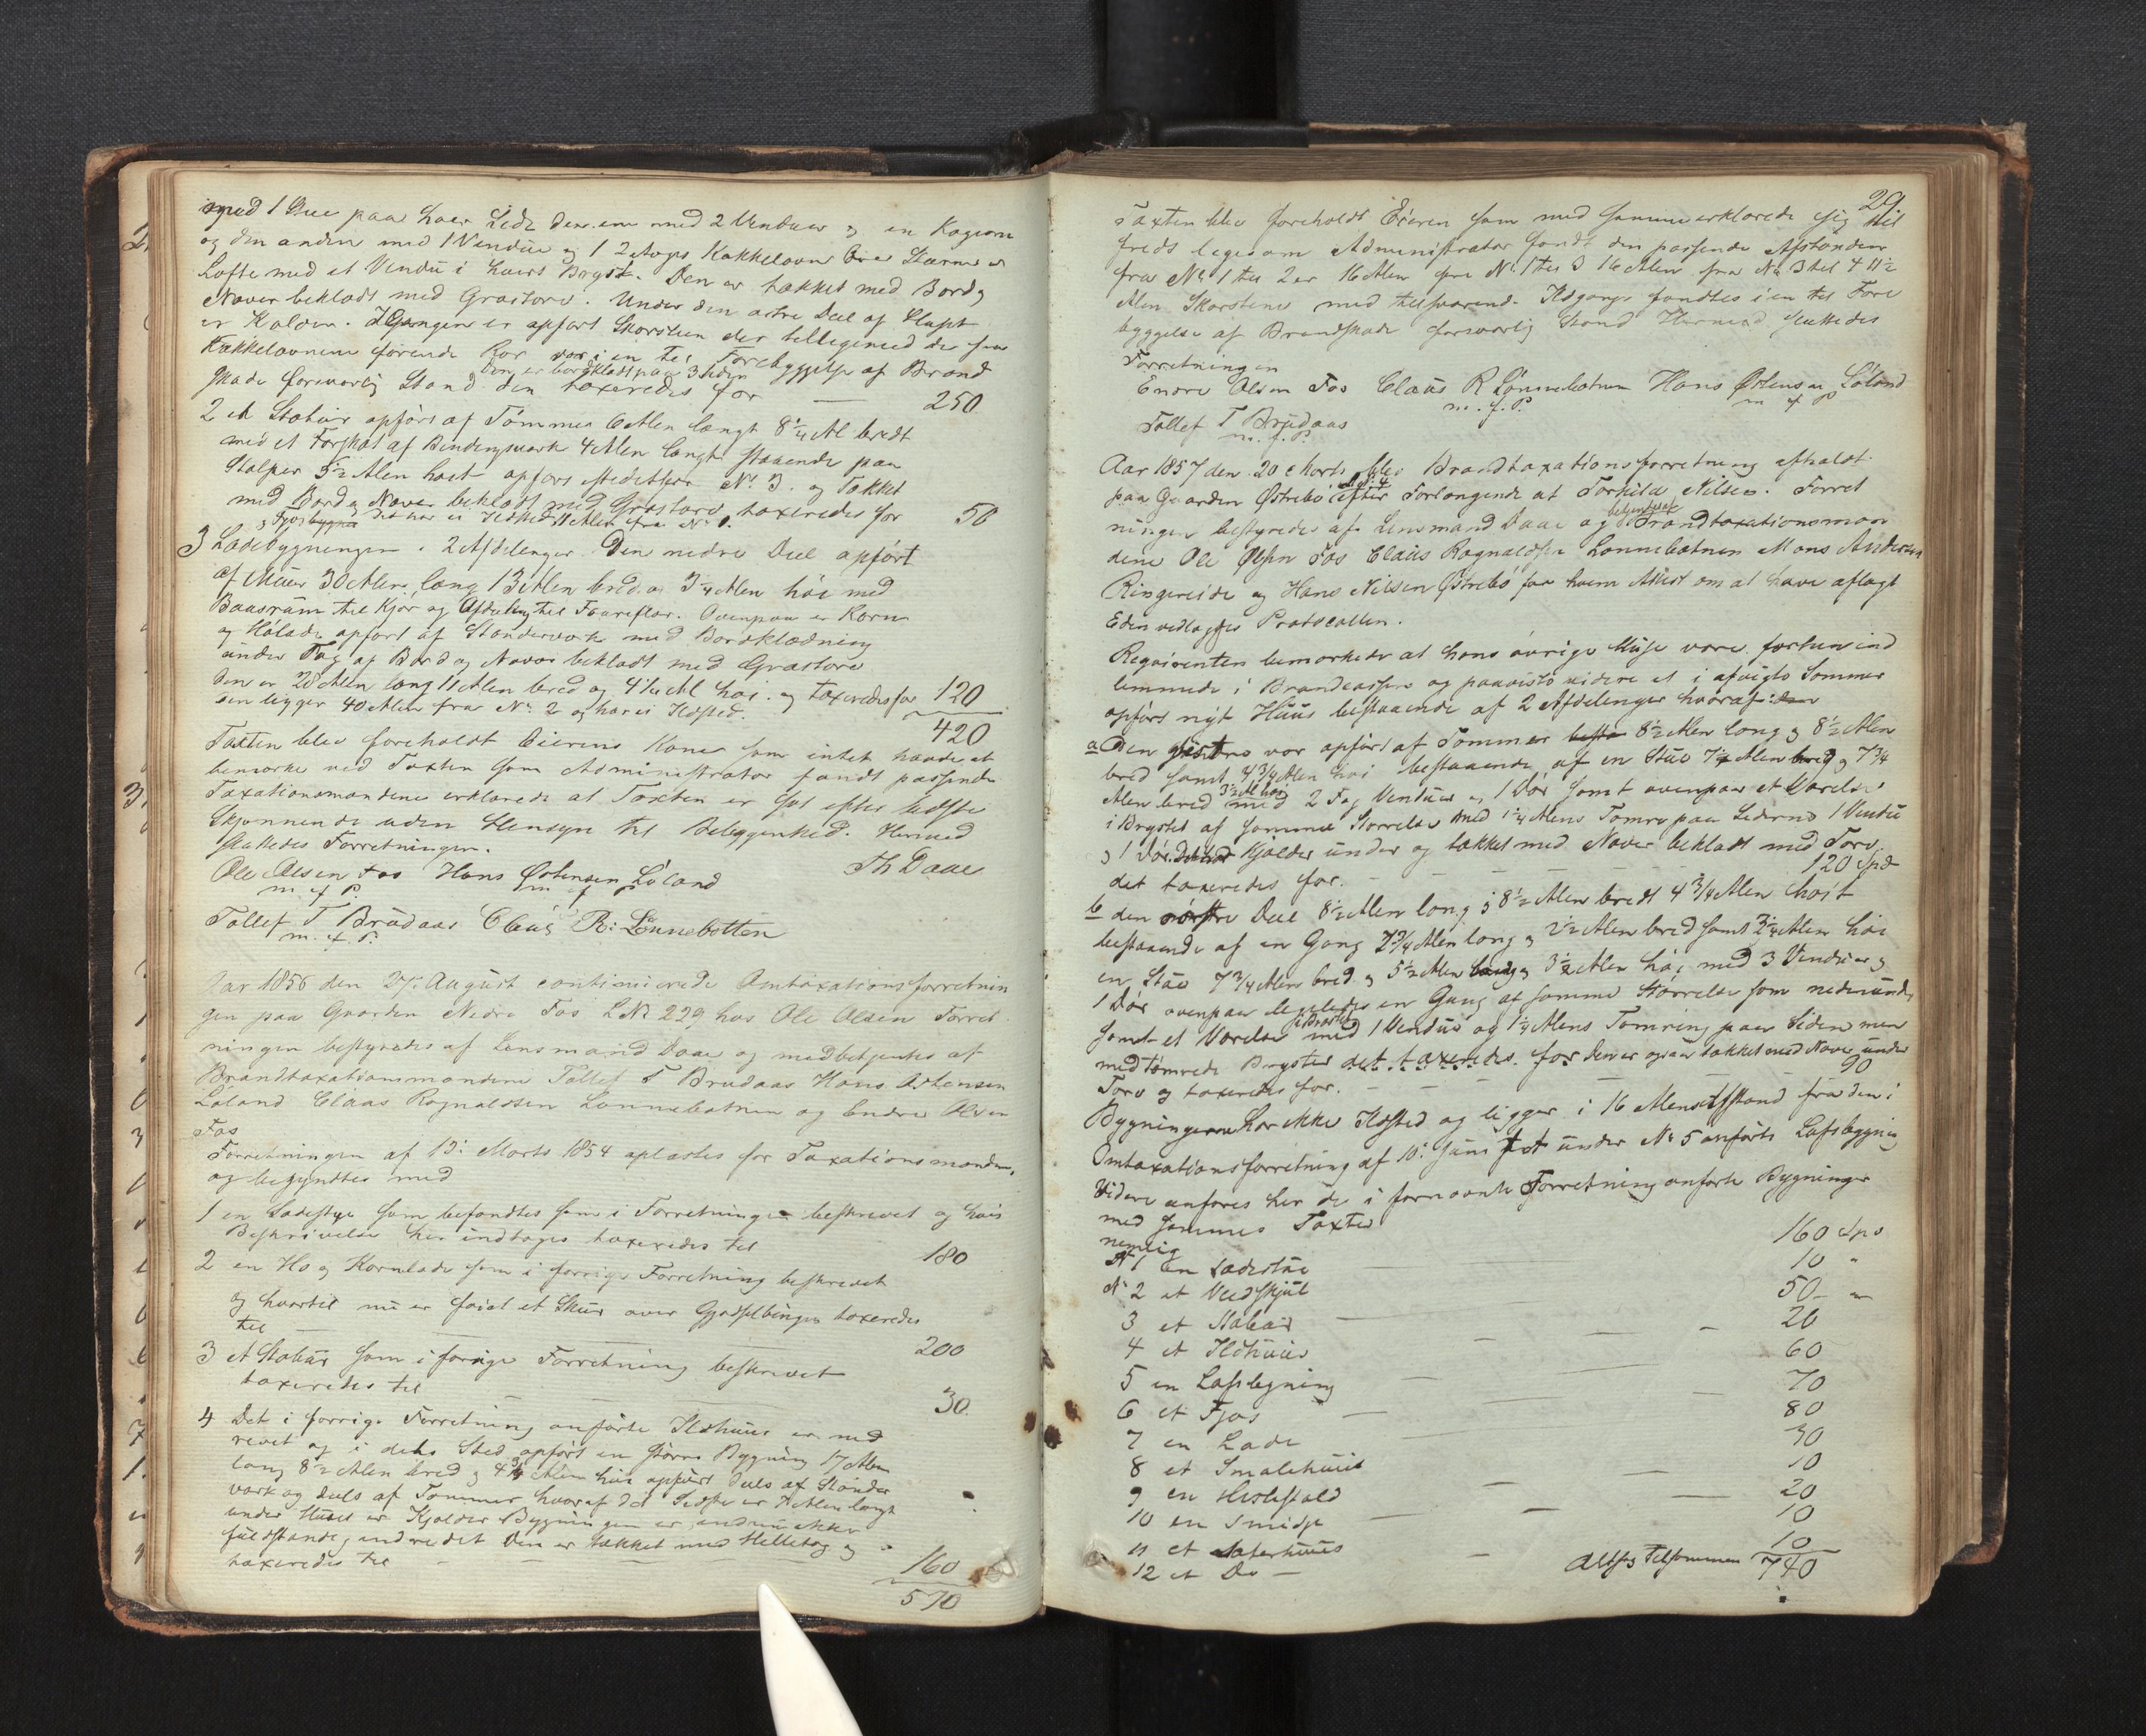 med 1 Due paa hver Side den ene med 2 Venduer og en Kogeovn
og den anden med 1 Vendue og 1 2 Etages Kakkelovn Over Stuerne er
Lofte med et Vendu i hvert Bryst. Den er tækket med Bord og
Næver beklædt med Græstorv. Under den østre Deel af Huset
er Kjælder. I Gangen er opført Skorsteen der tilligemed de fra
Kakkelovnene førende Rør var i en til Forebyggelse af Brand
Den er bordklædt paa 3 Sider
skade forsvarlig Stand. den taxeredes for — 250
2 et Stabur opført af Tømmer 6 Alen langt 8 1/4 Al bredt
med et Forskot af Bindingsværk 4 Alen langt staaende paa
Stolper 5 1/2 Alen høit opført istedetfor No 3. og Tækket
med Bord og Næver beklædt med Græstorv taxeredes for 50
det har ei Ildsted Alen fra No 1.
3 Ladebygningen i 2 Afdelinger. Den nedre Deel opført
af Muur 30 Alen lang 13 Alen bred og 3 1/4 Alen høi med
Baasrum til Kjør og Afdeling til Faareflor. Ovenpaa er Korn
og Hølade opført af Standerværk med Bordklædning
under Tag af Bord og Næver beklædt med Græstorv
Den er 28 Alen lang 11 Alen bred og 4 1/4 Al høi. og taxeredes for 120
den ligger 40 Alen fra No 2 og har ei Ildsted.
420
Taxten blev foreholdt Eierens Kone som intet havde at
bemærke ved Taxten som Administrator fandt passende
Taxationsmændene erklærede at Taxten er sat efter bedste
Skjønnende uden Hensyn til Beliggenhed. Hermed
sluttedes Forretningen.
Ole Olsen Fos Hans Østensen Løland Th Daae
m f P. m f P
Tollef T Brudaas Claus R: Lønnebotten
m. f. P.
Aar 1856 den 27. August continuerede Omtaxationsforretnin
gen paa Gaarden Nedre Fos LNr 229 hos Ole Olsen Forret
ningen bestyredes af Lensmand Daae og medbetjentes af
Brandtaxationsmændene Tollef T Brudaas Hans Østensen
Løland Claus Ragnaldsen Lønnebotnen og Endre Olsen
Fos
Forretningen af 13: Marts 1854 oplæstes for Taxationsmændene,
og begyndtes med
1 en Ladestue som befandtes som i Forretningen beskrevet og hvis
Beskrivelse her indtages taxeredes til 180
2 en Hø og Kornlade som i forrige Forretning beskrevet
og hvortil nu er føiet et Skuur over Gjødselbingen taxeredes
til — 200
3 et Stabur som i forrige Forretning beskrevet
taxeredes til — 30.
4 Det i forrige Forretning anførte Ildhuus er ned
revet og i dets Sted opført en større Bygning 17 Alen
lang 8 1/2 Alen bred og 4 3/4 Alen høi opført deels af Stander
værk og deels af Tømmer hvoraf det Sidste er 7 Alen langt
under Huset er Kjelder Bygningen er endnu ikke
fuldstændig indredet Den er tækket med Helletag og
taxeredes til — 160
570
29.
Taxten blev foreholdt Eieren som med samme erklærede sig til
freds ligesom Administrator fandt den passende Afstanden
fra No 1 til 2 er 16 Alen fra No 1 til 3 16 Alen fra No 3 til 4 11 1/2
Alen Skorstene med tilsvarende Ildgange fandtes i en til Fore
byggelse af Brandskade forsvarlig Stand Hermed sluttedes
Forretningen
Endre Olsen Fos Claus R Lønnebotnen Hans Østensen Løland
m. f. P. m f P
Tollef T Brudaas
m. f. P.
Aar 1857 den 20 Marts blev Brandtaxationsforretning afholdt
paa Gaarden Østrebø efter Forlangende af Torkild Nilsen. Forret
ningen bestyredes af Lensmand Daae og betjentes af Brandtaxationsmæn
dene Ole Olsen Fos Claus Ragnaldsen Lønnebotnen Mons Andersen
Ringereide og Hans Nilsen Østrebø for hvem Attest om at have aflagt
Eden vedlægges Protocollen.
Reqvirenten bemærkede at hans øvrige Huse vare forhen ind
lemmede i Brandcassen og paaviste videre et i afvigte Sommer
opført nyt Huus bestaaende af 2 Afdelinger hvoraf:
a Den østre var opført af Tømmer 8 1/2 Alen lang og 8 1/2 Alen
bred samt 4 3/4 Alen høi bestaaende af en Stue 7 1/4 Alen og 7 3/4
Alen bred 3 1/2 Al høi med 2 Fag Venduer og 1 Dør samt ovenpaa et Værelse
i Brystet af samme Størrelse med 1 1/4 Alens Tømring paa Siderne 1 Vendu
og 1 Dør. Kjælder under og tækket med Næver beklædt med Torv.
det taxeredes for. — 120 Spd
b den Deel 8 1/2 Alen lang og 8 1/2 Alen bredt 4 3/4 Alen høit
bestaaende af en Gang 7 3/4 Alen lang og 2 1/2 Alen bred samt 3 1/4 Alen høi
en Stue 7 3/4 Alen bred og 5 1/2 Alen lang og 3 1/2 Alen høi med 3 Venduer og
1 Dør ovenpaa ligeledes en Gang af samme Størrelse som nedenunder
samt et Værelse i Brystet med 1 Vendue og 1 1/4 Alens Tømring paa Siden men
med tømrede Bryster det taxeredes for den er ogsaa tækket med Næver under
Torv og taxeredes for. — 90
Bygningerne har ikke Ildsted og ligger i 16 Alens Afstand fra den i
Omtaxationsforretning af 10: Juni under No 5 anførte Lofsbygning
Videre anføres her de i fornævnte Forretning anførte Bygninger
med sammes Taxter
nemlig
No 1 en Ladestue 160 Spd
No 2 et Vedskjul 10 "
3 et Stabur — 50 - "
4 et Ildhuus — 20
5 en Lofsbygning — 60
6 et Fjøs — 70
7 en Lade 80
8 et Smalehuus — 30
9 en Hestestald — 10
10 en Smidje — 20
11 et Qvernhuus — 10
12 et Do — 10
Altsaa Tilsammen 740